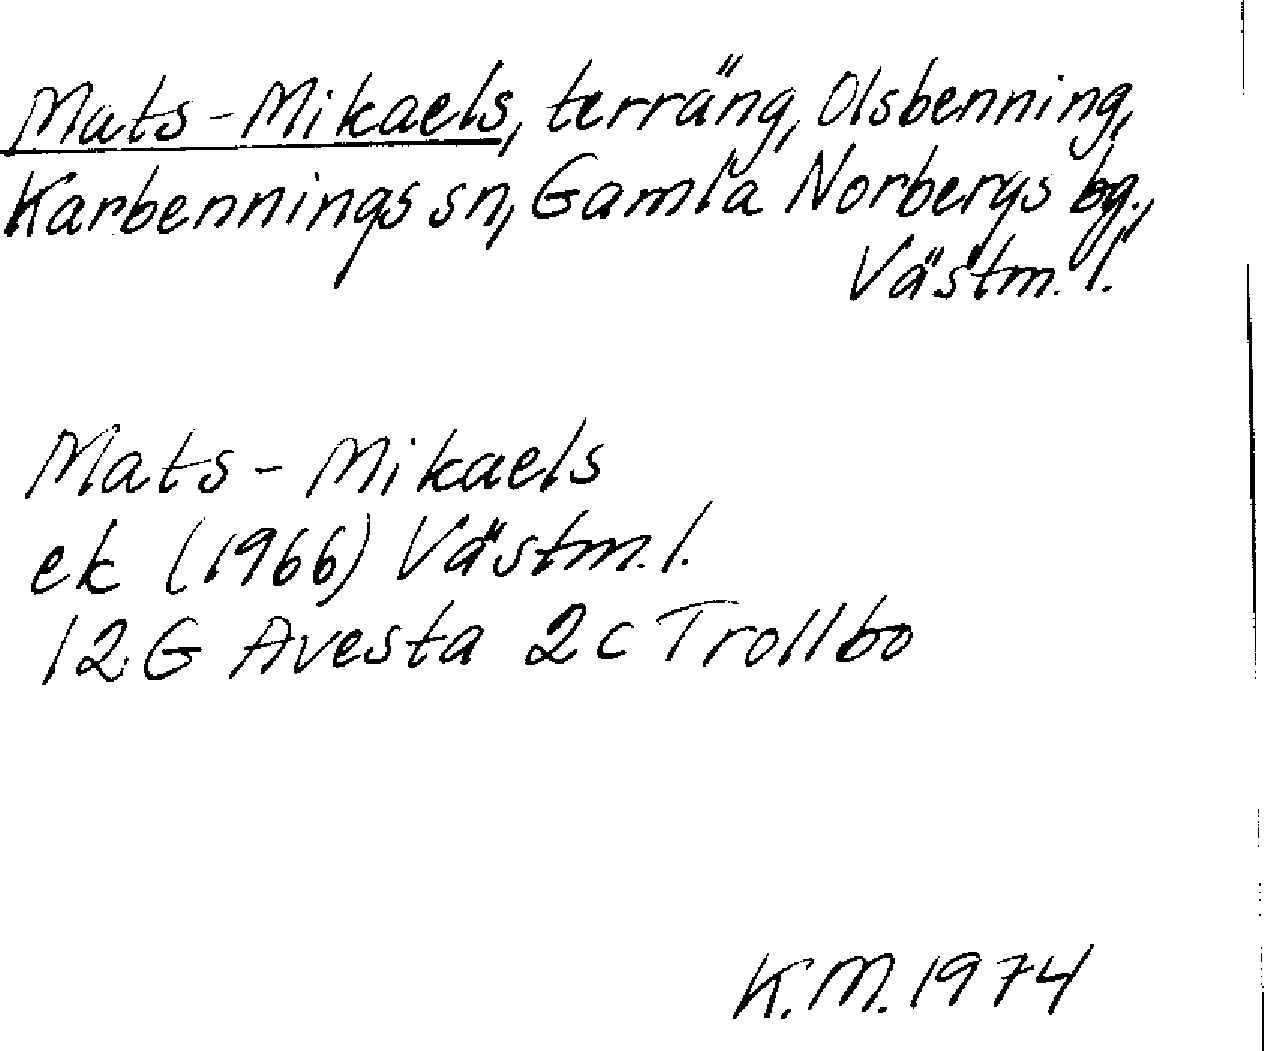 Mats-Mikaels, terräng, Olsbenning,
Karbennings sn, Gamla Norbergs bg.,
Västm. l.
Mats-Mikaels
ek (1966) Västm. l.
12 G Avesta 2 c Trollbo
K.M. 1974